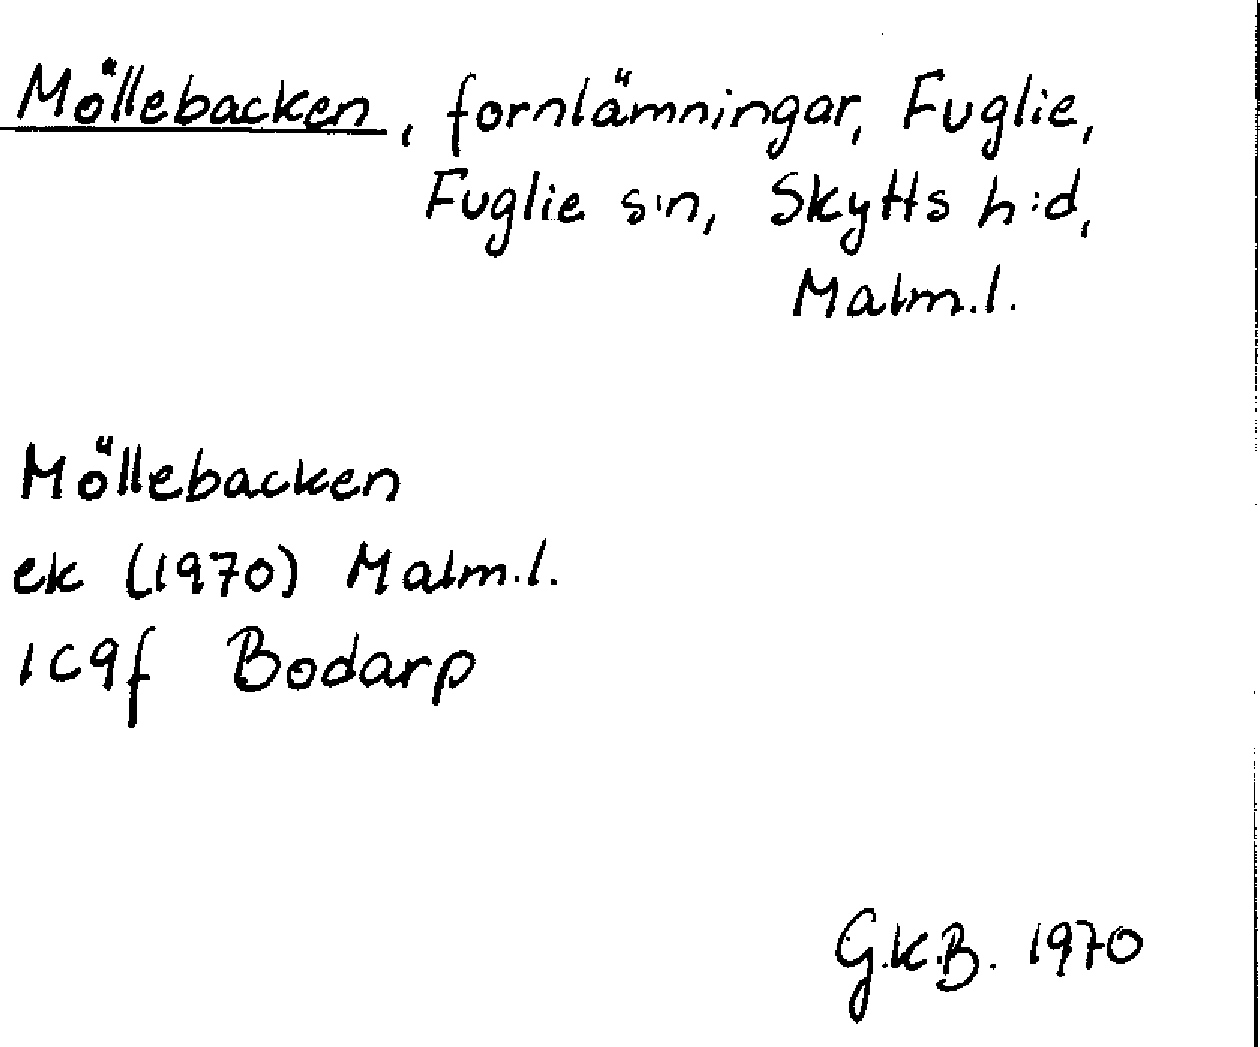 Möllebacken, fornlämningar, Fuglie,
Fuglie s:n, Skytts h:d,
Malm.l.
Möllebacken
ek (1970) Malm.l.
1C9f Bodarp
G.K.B. 1970